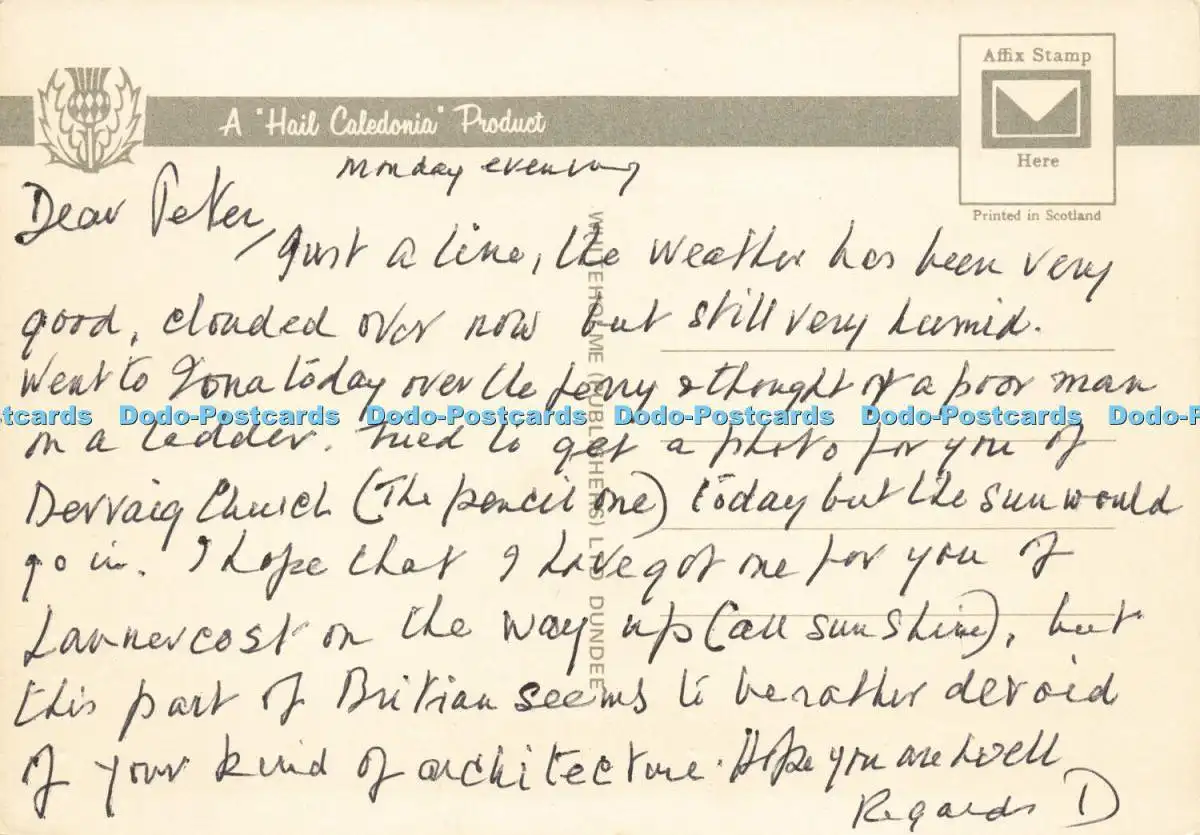 Affix Stamp
A "Hail Caledonia" Product
Here
Printed in Scotland
Monday evening
Dear Peter,
Just a line, the weather has been very
good, clouded over now but still very humid.
Went to Iona today over the ferry & thought of a poor man
on a ladder. Tried to get a photo for you of
Dervaig Church (The pencil one) today but the sun would
go in. I hope that I have got one for you of
Lannercost on the way up (all sunshine), but
this part of Britian seems to be rather devoid
of your kind of architecture. Hope you are well
Regards D
WHITEHOLME (PUBLISHERS) LTD DUNDEE
Dodo-Postcards Dodo-Postcards Dodo-Postcards Dodo-Postcards